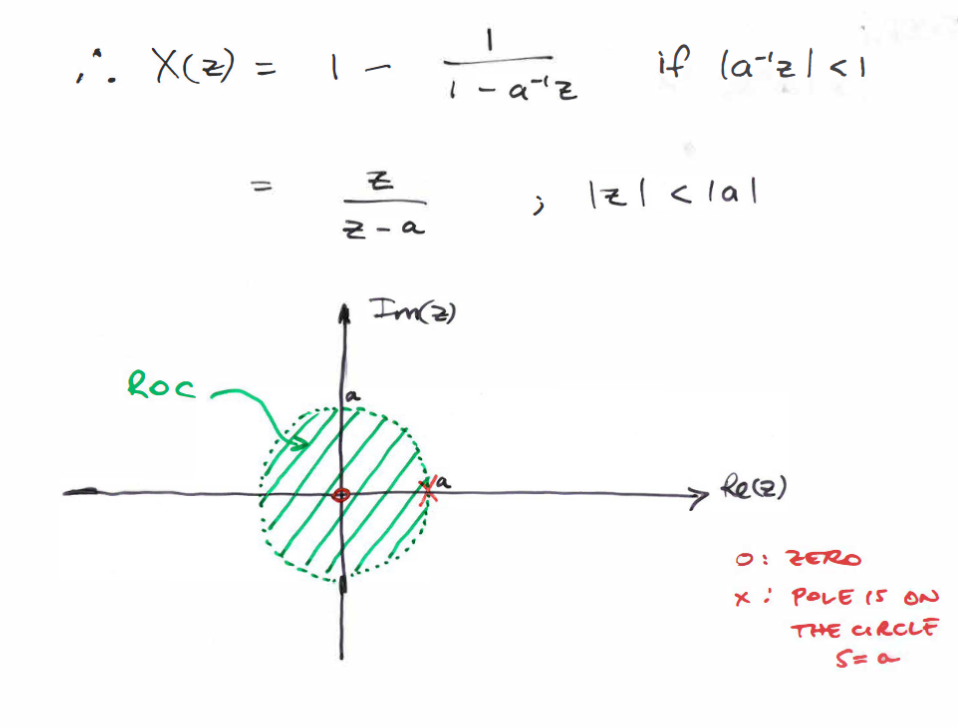 ∴ X(z) = 1 - 1/(1 - a⁻¹z) if |a⁻¹z| < 1
= z/(z - a) ; |z| < |a|
Im(z)
ROC
a
a
Re(z)
O: ZERO
X: POLE IS ON
THE CIRCLE
S = a